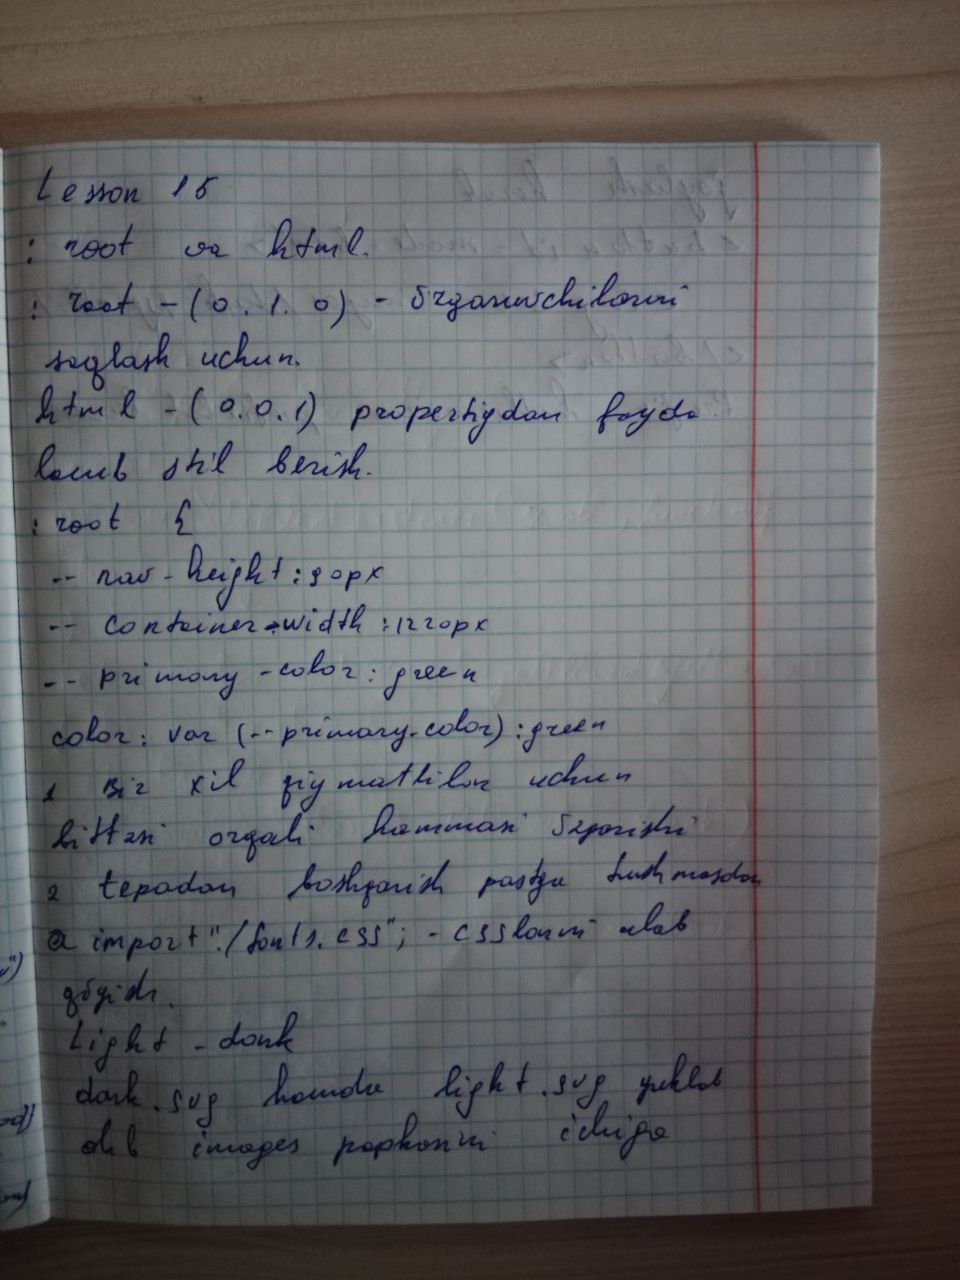 Lesson 15
: root va html.
: root - (0.1.0) - õzgaruvchilarni
saqlash uchun.
html - (0.0.1) propertiydan foyda
lanib stil berish.
: root {
-- nav-height : 90px
-- container-width : 1220px
-- primary-color : green
color : var (--primary-color) : green
1 Bir xil qiymatlilar uchun
bittasi orqali hammasi õzgarishi
2 tepadan boshqarish pastga tushmasdan
@ import "./fonts.css"; - csslarni ulab
qõyish.
Light - dark
dark.svg hamda light.svg yuklab
olib images papkasini ichiga